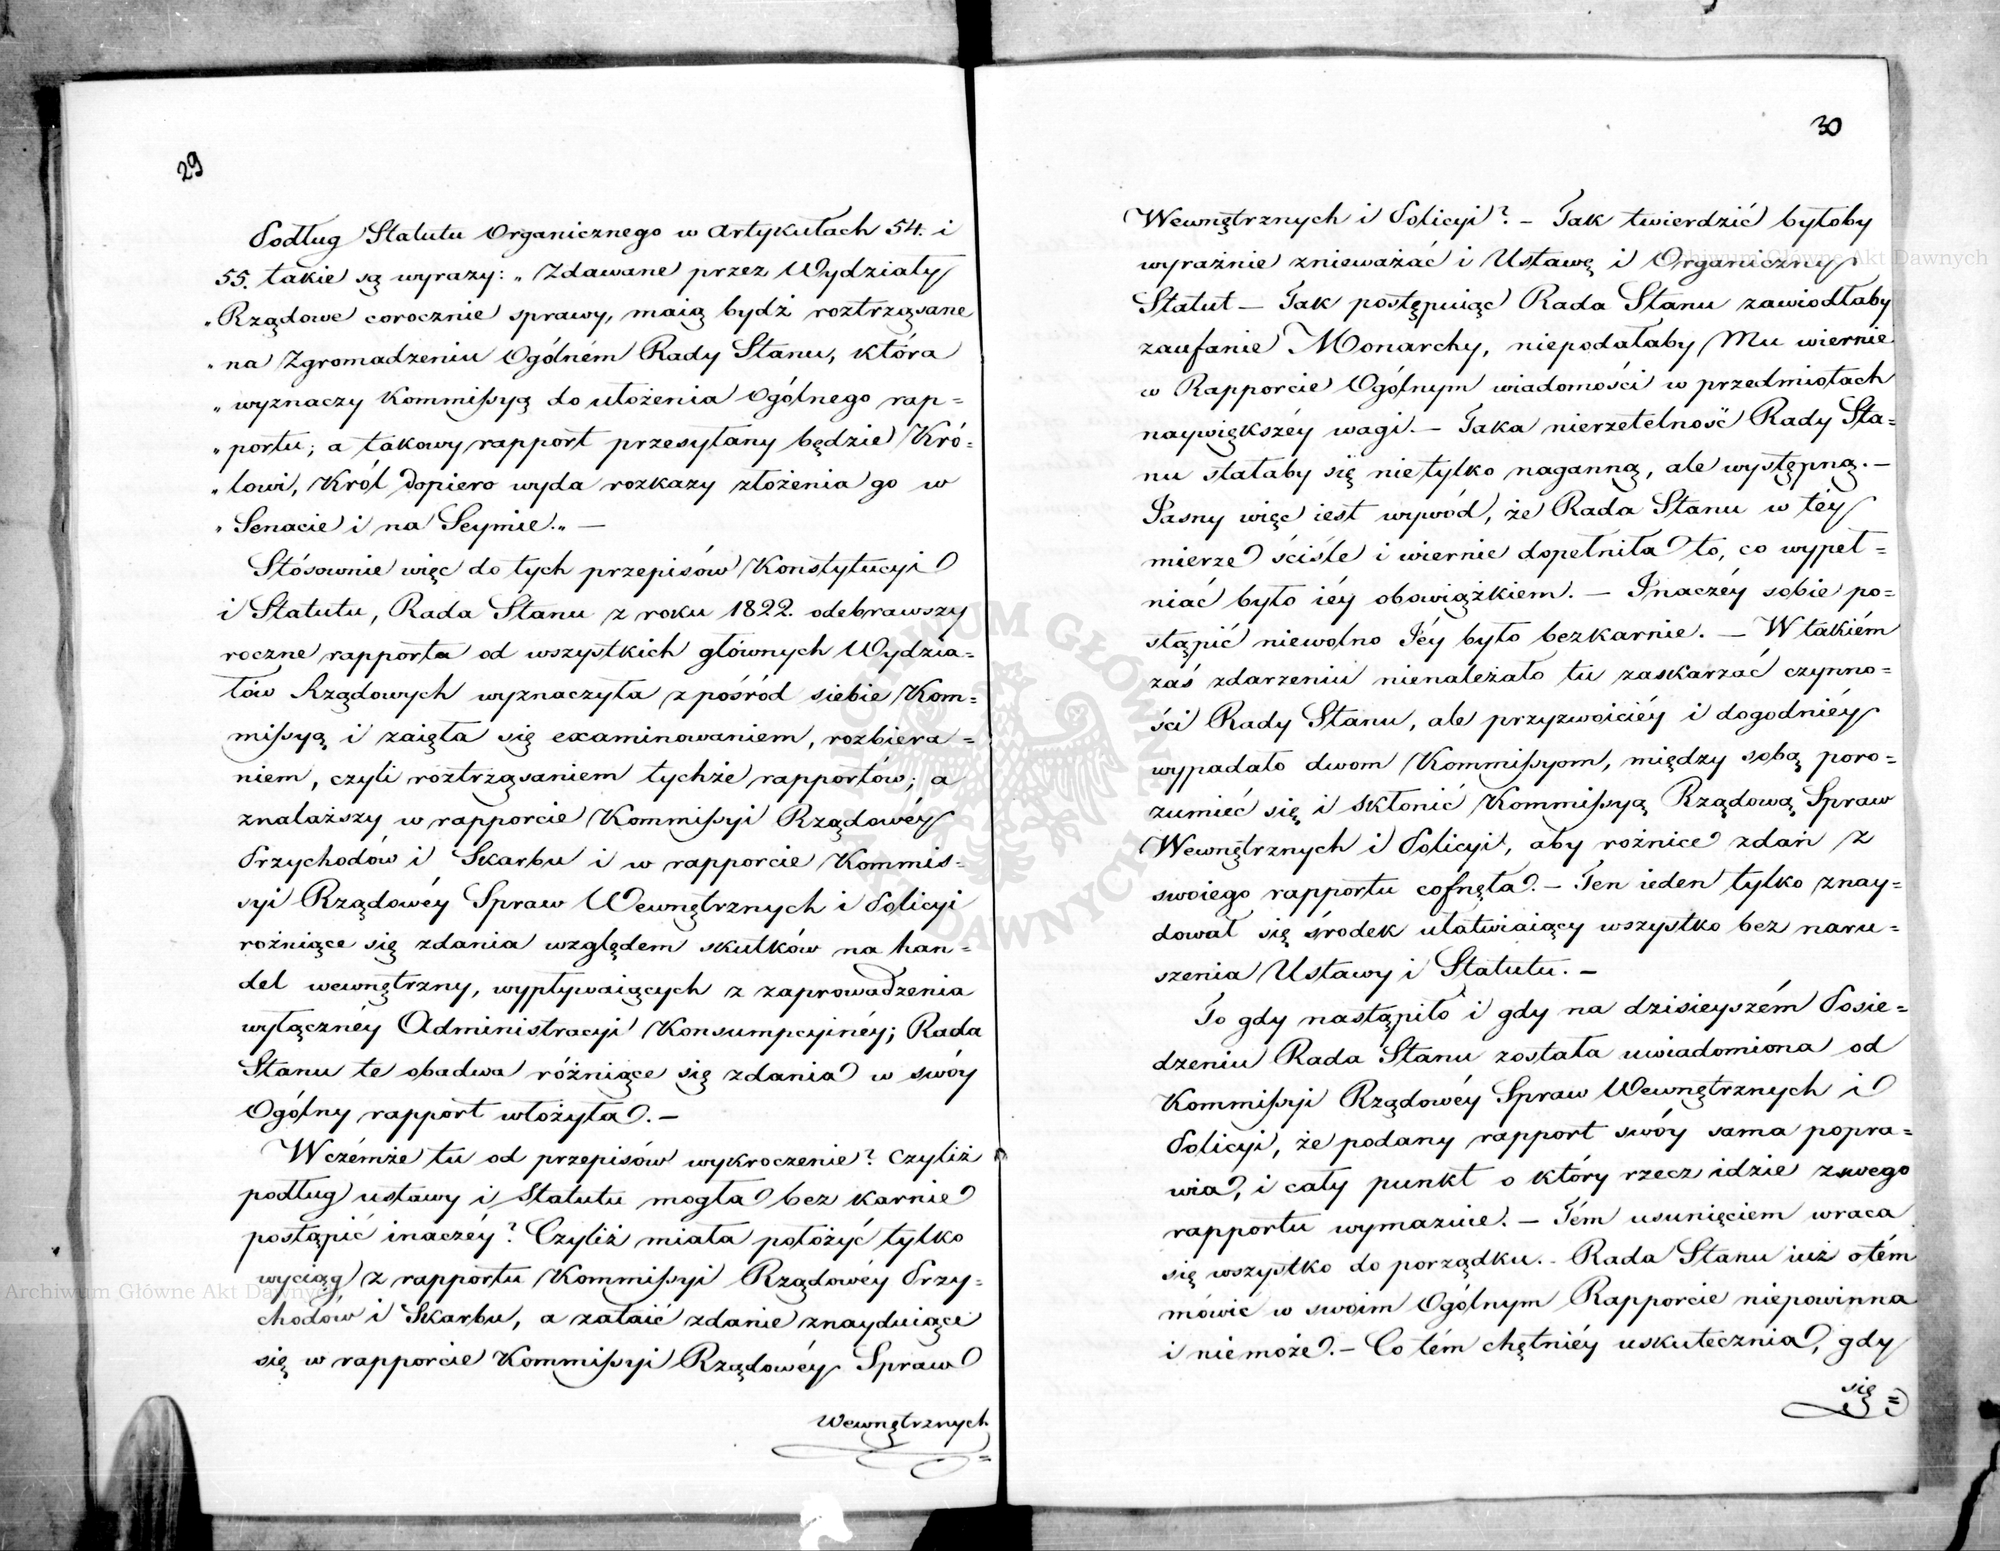 29
Podług Statutu Organicznego w Artykułach 54. i
55. takie są wyrazy: „ Zdawane przez Wydziały
„ Rządowe corocznie sprawy, maią bydź roztrząsane
„ na Zgromadzeniu Ogólném Rady Stanu, która
„ wyznaczy Kommissyą do ułożenia Ogólnego rap=
„ portu; a takowy rapport przesyłany będzie Kró=
„ lowi, Król dopiero wyda rozkazy złożenia go w
„ Senacie i na Seymie.„ —
Stósownie więc do tych przepisów Konstytucyi
i Statutu, Rada Stanu z roku 1822. odebrawszy
roczne rapporta od wszystkich głównych Wydzia=
łów Rządowych wyznaczyła z pośród siebie Kom=
missyą i zaięła się examinowaniem, rozbiera=
niem, czyli roztrząsaniem tychże rapportów; a
znalazszy w rapporcie Kommissyi Rządowéy
Przychodów i Skarbu i w rapporcie Kommis=
syi Rządowéy Spraw Wewnętrznych i Policyi
rożniące się zdania względem skutków na han=
del wewnętrzny, wypływaiących z zaprowadzenia
wyłącznéy Administracyi Konsumpcyinéy; Rada
Stanu te obadwa różniące się zdania w swóy
Ogólny rapport włożyła. —
W czémże tu od przepisów wykroczenie? Czyliż
podług ustawy i Statutu mogła bez karnie
postąpić inaczéy? Czyliż miała położyć tylko
wyciąg z rapportu Kommissyi Rządowéy Przy=
chodów i Skarbu, a zataić zdanie znayduiące
się w rapporcie Kommissyi Rządowéy Spraw
Wewnętrznych =
30
Wewnętrznych i Policyi? — Tak twierdzić byłoby
wyraźnie znieważać i Ustawę i Organiczny
Statut — Tak postępuiąc Rada Stanu zawiodłaby
zaufanie Monarchy, niepodałaby Mu wiernie
w Rapporcie Ogólnym wiadomości w przedmiotach
naywiększéy wagi. — Taka nierzetelność Rady Sta=
nu stałaby się nietylko naganną, ale występną. —
Jasny więc iest wywód, że Rada Stanu w téy
mierze ściśle i wiernie dopełniła to, co wypeł=
niać było iéy obowiązkiem. — Inaczéy sobie po=
stąpić niewolno Jéy było bezkarnie. — W takiém
zaś zdarzeniu nienależało tu zaskarzać czynno=
ści Rady Stanu, ale przyzwoiciéy i dogodniéy
wypadało dwom Kommissyom, między sobą poro=
zumieć się i skłonić Kommissyą Rządową Spraw
Wewnętrznych i Policyi, aby rożnice zdań z
swoiego rapportu cofnęła. — Ten ieden tylko znay=
dował się środek ułatwiaiący wszystko bez naru=
szenia Ustawy i Statutu. —
To gdy nastąpiło i gdy na dzisieyszém Posie=
dzeniu Rada Stanu została uwiadomiona od
Kommissyi Rządowéy Spraw Wewnętrznych i
Policyi, że podany rapport swóy sama popra=
wia, i cały punkt o który rzecz idzie z swego
rapportu wymazuie. — Tém usunięciem wraca
się wszystko do porządku. - Rada Stanu iuż o tém
mówić w swoim Ogólnym Rapporcie niepowinna
i niemoże. — Co tém chętniéy uskutecznia, gdy
się =
Archiwum Główne Akt Dawnych
Archiwum Główne Akt Dawnych
ARCHIWUM GŁÓWNE AKT DAWNYCH